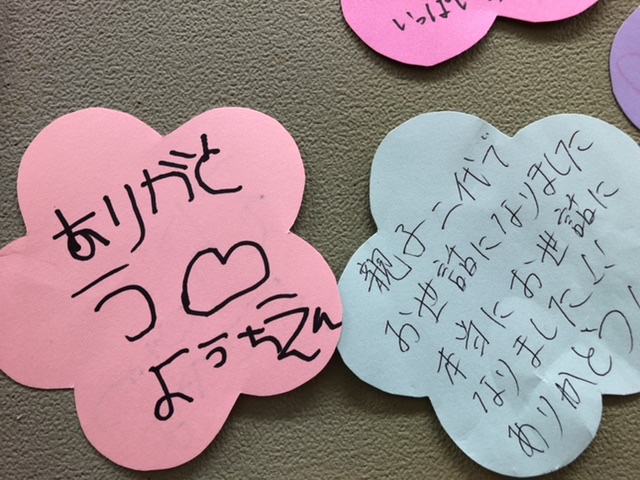 いっぱい
ありがと
う♡
ようちえん
親子二代で
お世話になりました
本当にお世話に
なりました!!
ありがとう!